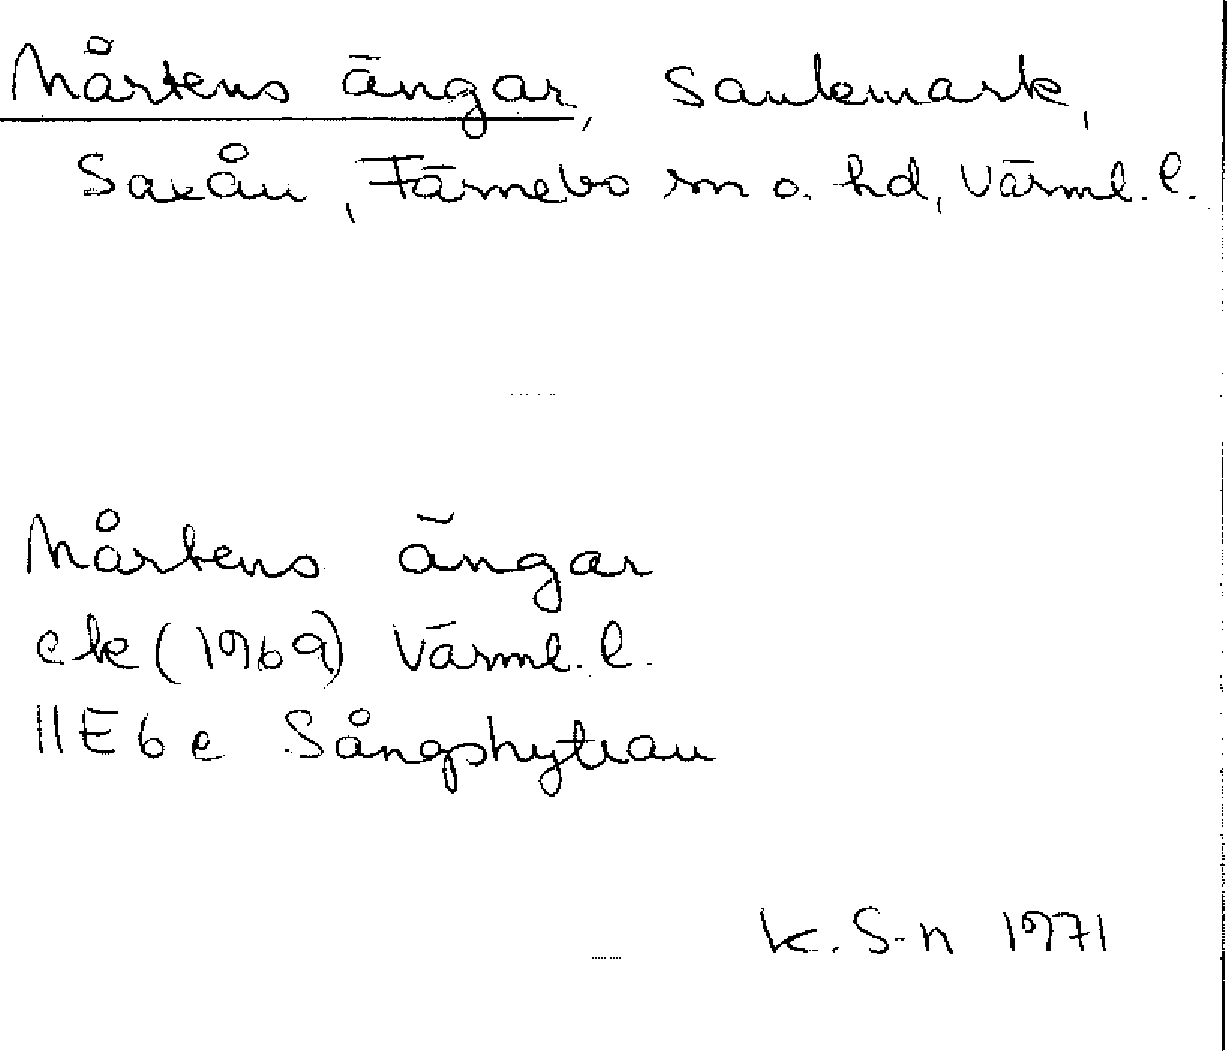 Mårtens ängar, Sankmark,
Saxån, Färnebo sn o. hd, Värml. l.
Mårtens ängar
ek (1969) Värml. l.
11E6e Sångshyttan
K. S-n 1971